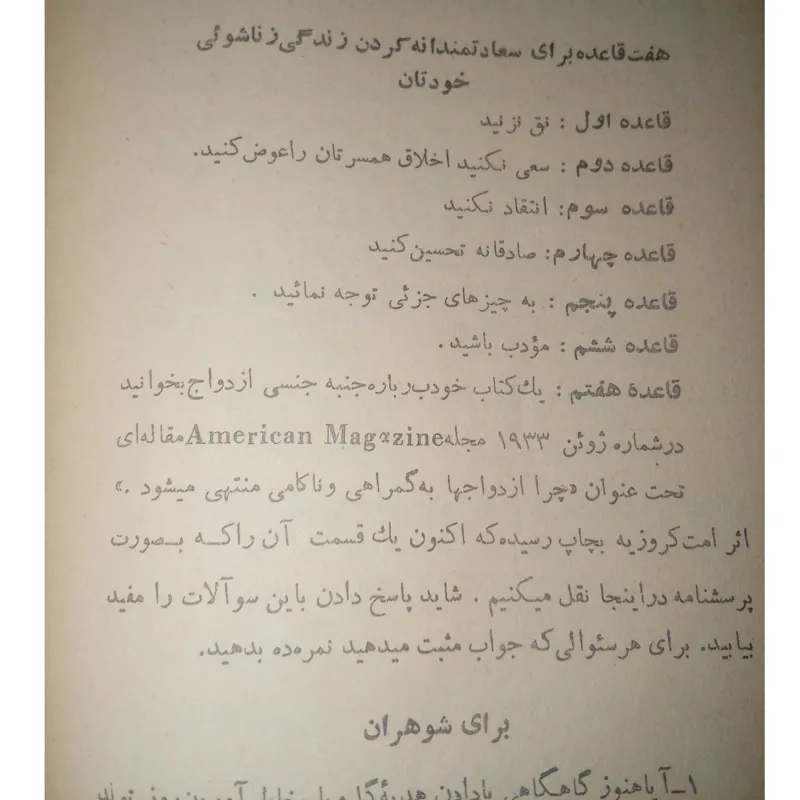 هفت قاعده برای سعادتمندانه کردن زندگی زناشوئی
خودتان
قاعده اول : نق نزنید
قاعده دوم : سعی نکنید اخلاق همسرتان را عوض کنید.
قاعده سوم: انتقاد نکنید
قاعده چهارم: صادقانه تحسین کنید
قاعده پنجم : به چیزهای جزئی توجه نمائید .
قاعده ششم : مؤدب باشید.
قاعدهٔ هفتم : یك کتاب خوب درباره جنبه جنسی ازدواج بخوانید
در شماره ژوئن ۱۹۳۳ مجله American Magazine مقاله‌ای
تحت عنوان «چرا ازدواجها به گمراهی و ناکامی منتهی میشود .»
اثر امت کروزیه بچاپ رسیده که اکنون یك قسمت آن را که بـصورت
پرسشنامه در اینجا نقل میکنیم . شاید پاسخ دادن باین سوآلات را مفید
بیابید. برای هر سئوالی که جواب مثبت میدهید نمره ده بدهید.
برای شوهران
۱ـ آیا هنوز گاهگاهی با دادن هدیهٔ